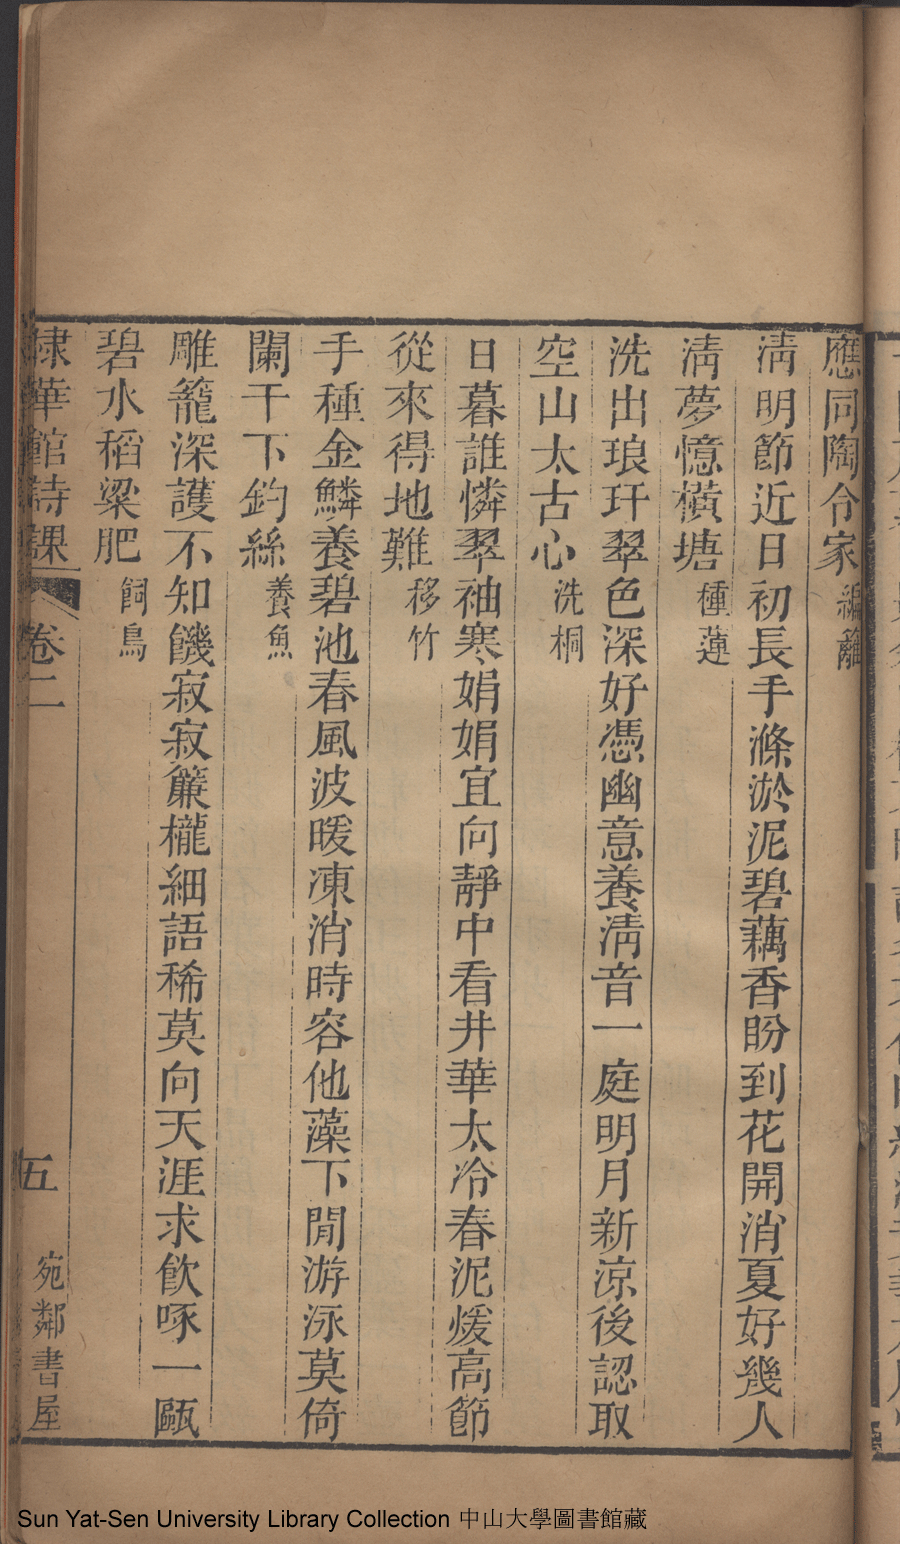 應同陶令家編籬
清明節近日初長手滌淤泥碧藕香盼到花開消夏好幾人
清夢憶橫塘種蓮
洗出琅玕翠色深好憑幽意養清音一庭明月新涼後認取
空山太古心洗桐
日暮誰憐翠袖寒娟娟宜向靜中看井華太冷春泥煖高節
從來得地難移竹
手種金鱗養碧池春風波暖凍消時容他藻下閒游泳莫倚
闌干下釣絲養魚
雕籠深護不知饑寂寂簾櫳細語稀莫向天涯求飲啄一甌
碧水稻粱肥飼鳥
棣華館詩課 卷二 五 宛鄰書屋
Sun Yat-Sen University Library Collection 中山大學圖書館藏